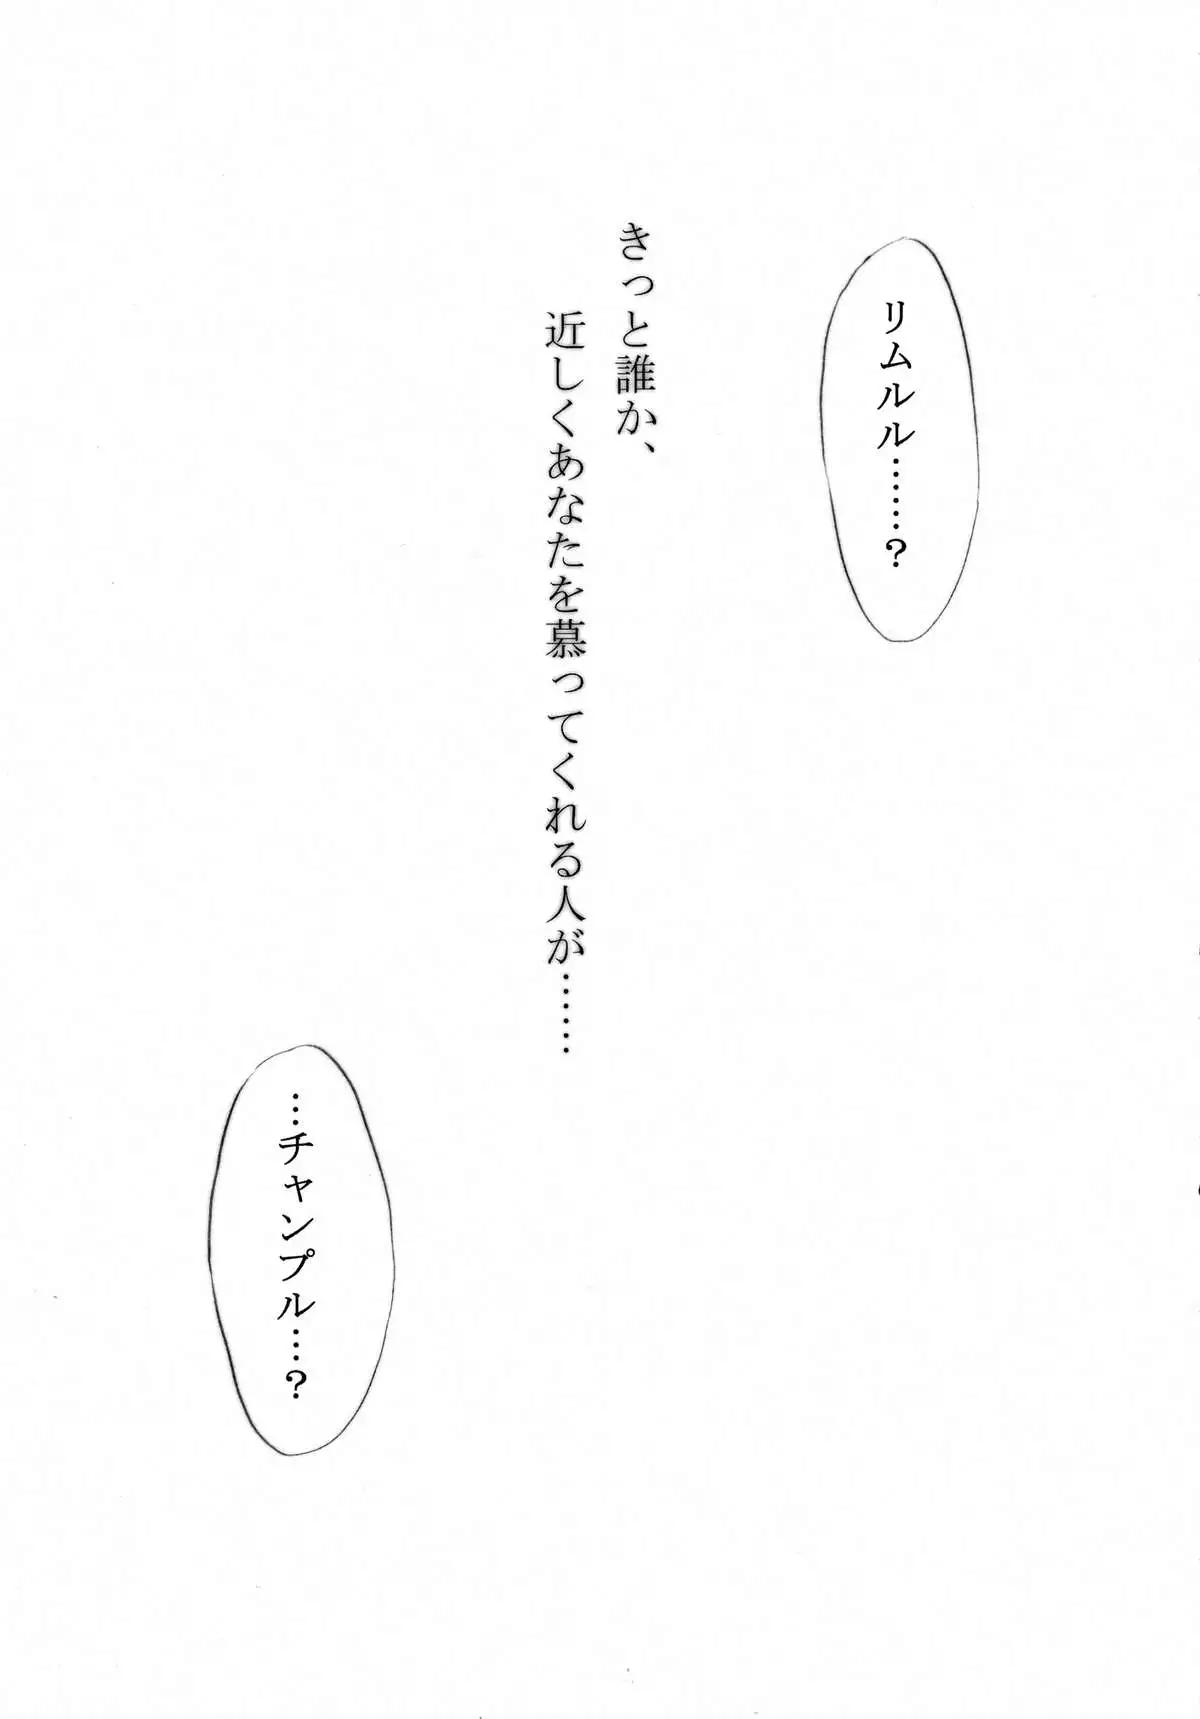 リムルル………?
きっと誰か、
近しくあなたを慕ってくれる人が………
…チャンプル…?